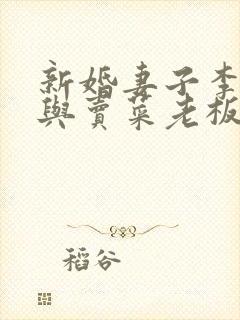 新婚妻子李
與賣菜老板
稻谷